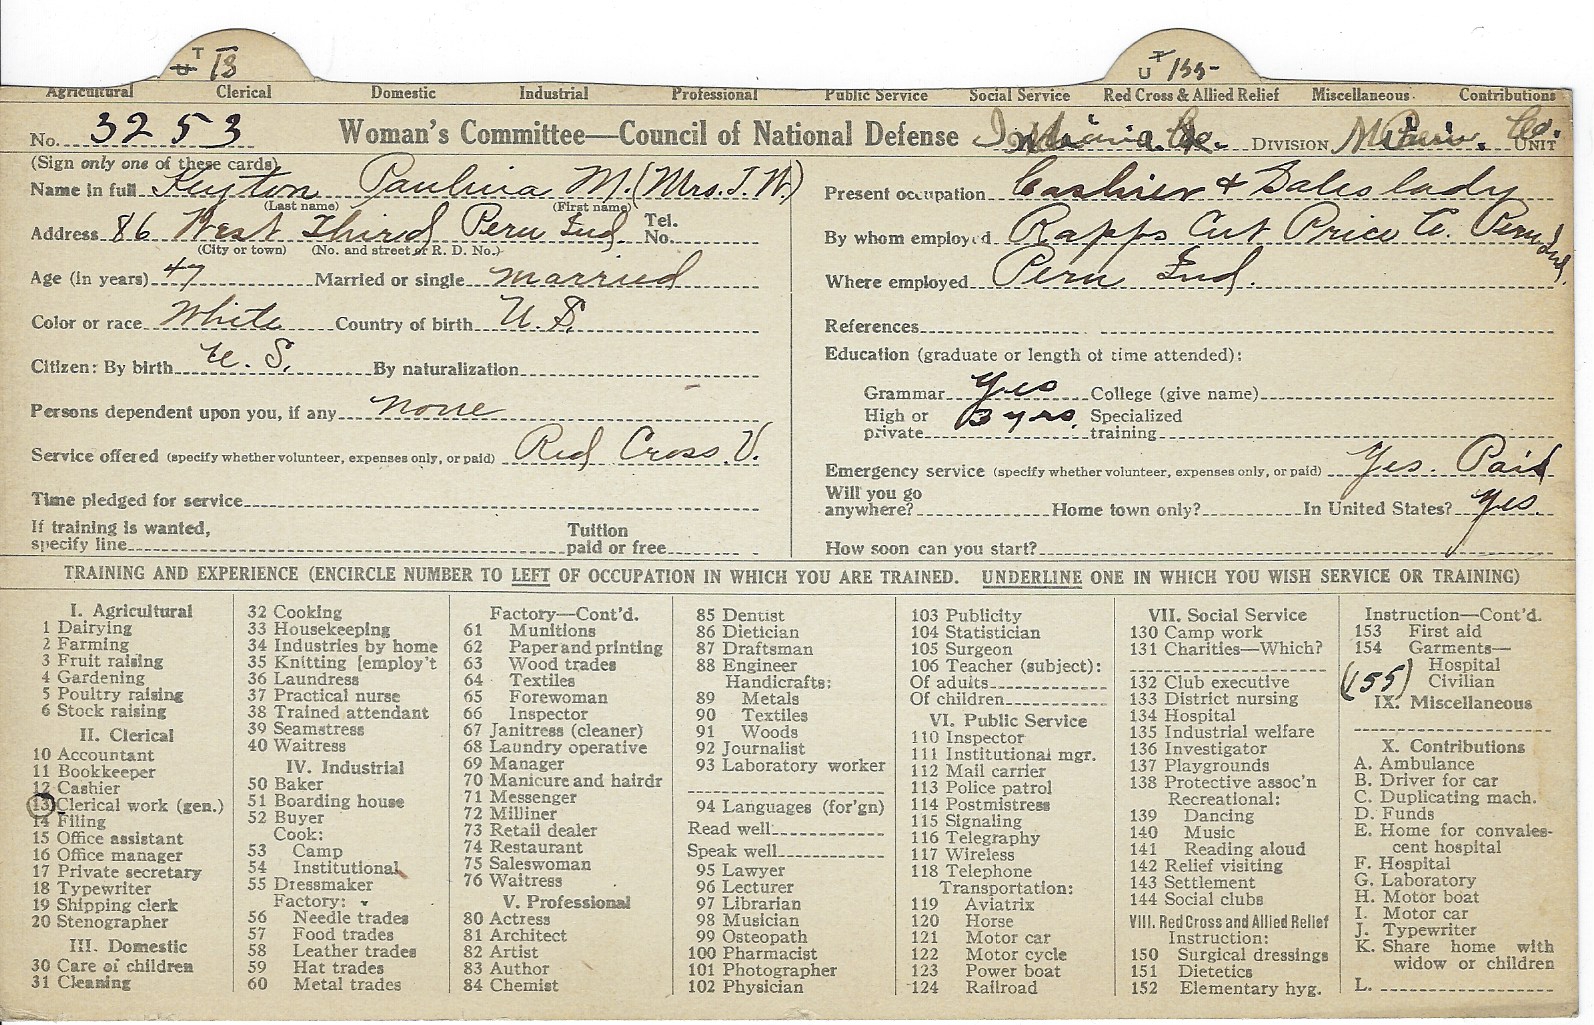 T U 13
U T 155-
Agricultural Clerical Domestic Industrial Professional Public Service Social Service Red Cross & Allied Relief Miscellaneous Contributions
No. 3253 Woman's Committee—Council of National Defense Indiana DIVISION Co. UNIT
(Sign only one of these cards)
Name in full Keyton Paulina M. (Mrs. J. W.)
(Last name) (First name)
Address 86 West Third Peru Ind. Tel. No.
(City or town) (No. and street or R. D. No.)
Age (in years) 47 Married or single married
Color or race White Country of birth U. S.
Citizen: By birth U. S. By naturalization
Persons dependent upon you, if any none
Service offered (specify whether volunteer, expenses only, or paid) Red Cross. V.
Time pledged for service
If training is wanted, specify line Tuition paid or free
Present occupation Cashier & Sales lady
By whom employed Rapps Cut Price Co. Peru Ind.
Where employed Peru Ind.
References
Education (graduate or length of time attended):
Grammar Yes College (give name)
High or private 3 yrs. Specialized training
Emergency service (specify whether volunteer, expenses only, or paid) Yes. Paid
Will you go anywhere? Home town only? In United States? Yes.
How soon can you start?
TRAINING AND EXPERIENCE (ENCIRCLE NUMBER TO LEFT OF OCCUPATION IN WHICH YOU ARE TRAINED. UNDERLINE ONE IN WHICH YOU WISH SERVICE OR TRAINING)
I. Agricultural
1 Dairying
2 Farming
3 Fruit raising
4 Gardening
5 Poultry raising
6 Stock raising
II. Clerical
10 Accountant
11 Bookkeeper
12 Cashier
13 Clerical work (gen.)
14 Filing
15 Office assistant
16 Office manager
17 Private secretary
18 Typewriter
19 Shipping clerk
20 Stenographer
III. Domestic
30 Care of children
31 Cleaning
32 Cooking
33 Housekeeping
34 Industries by home
35 Knitting [employ't
36 Laundress
37 Practical nurse
38 Trained attendant
39 Seamstress
40 Waitress
IV. Industrial
50 Baker
51 Boarding house
52 Buyer
Cook:
53 Camp
54 Institutional
55 Dressmaker
Factory:
56 Needle trades
57 Food trades
58 Leather trades
59 Hat trades
60 Metal trades
Factory—Cont'd.
61 Munitions
62 Paper and printing
63 Wood trades
64 Textiles
65 Forewoman
66 Inspector
67 Janitress (cleaner)
68 Laundry operative
69 Manager
70 Manicure and hairdr
71 Messenger
72 Milliner
73 Retail dealer
74 Restaurant
75 Saleswoman
76 Waitress
V. Professional
80 Actress
81 Architect
82 Artist
83 Author
84 Chemist
85 Dentist
86 Dietician
87 Draftsman
88 Engineer
Handicrafts:
89 Metals
90 Textiles
91 Woods
92 Journalist
93 Laboratory worker
94 Languages (for'gn)
Read well
Speak well
95 Lawyer
96 Lecturer
97 Librarian
98 Musician
99 Osteopath
100 Pharmacist
101 Photographer
102 Physician
103 Publicity
104 Statistician
105 Surgeon
106 Teacher (subject):
Of adults
Of children
VI. Public Service
110 Inspector
111 Institutional mgr.
112 Mail carrier
113 Police patrol
114 Postmistress
115 Signaling
116 Telegraphy
117 Wireless
118 Telephone
Transportation:
119 Aviatrix
120 Horse
121 Motor car
122 Motor cycle
123 Power boat
124 Railroad
VII. Social Service
130 Camp work
131 Charities—Which?
132 Club executive
133 District nursing
134 Hospital
135 Industrial welfare
136 Investigator
137 Playgrounds
138 Protective assoc'n
Recreational:
139 Dancing
140 Music
141 Reading aloud
142 Relief visiting
143 Settlement
144 Social clubs
VIII. Red Cross and Allied Relief
Instruction:
150 Surgical dressings
151 Dietetics
152 Elementary hyg.
Instruction—Cont'd.
153 First aid
154 Garments—
Hospital
(155) Civilian
IX. Miscellaneous
X. Contributions
A. Ambulance
B. Driver for car
C. Duplicating mach.
D. Funds
E. Home for convales-
cent hospital
F. Hospital
G. Laboratory
H. Motor boat
I. Motor car
J. Typewriter
K. Share home with
widow or children
L.